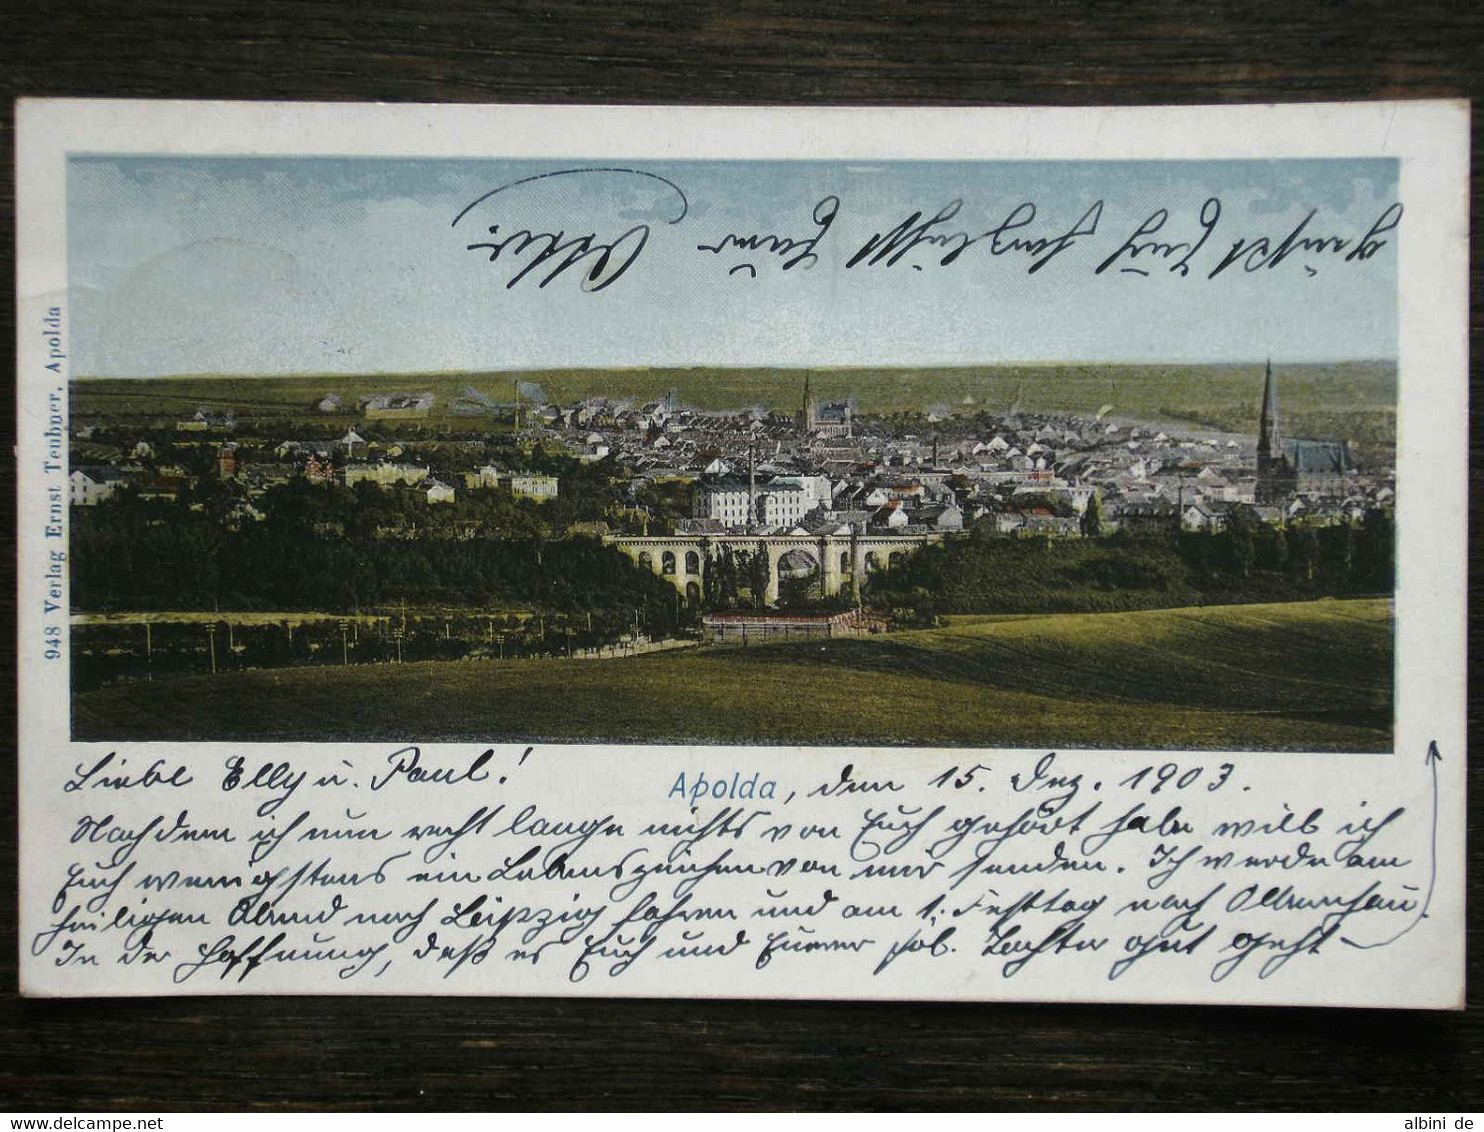 948 Verlag Ernst Teubner, Apolda
Liebe Elly u. Paul!
Apolda, den 15. Dez. 1903.
Nachdem ich nun recht lange nichts von Euch gehört habe will ich
Euch wenigstens ein Lebenszeichen von mir senden. Ich werde am
heiligen Abend nach Leipzig fahren und am 1. Festtag nach
In der Hoffnung, daß es Euch und Eurer Tochter gut geht
grüßt Euch herzlichst Euer Otto.
albini de